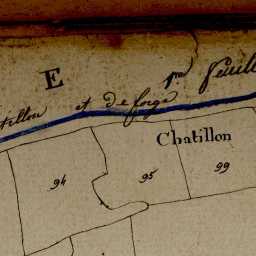 E 1re feuille
tillon et de forge
Chatillon
94 95 99